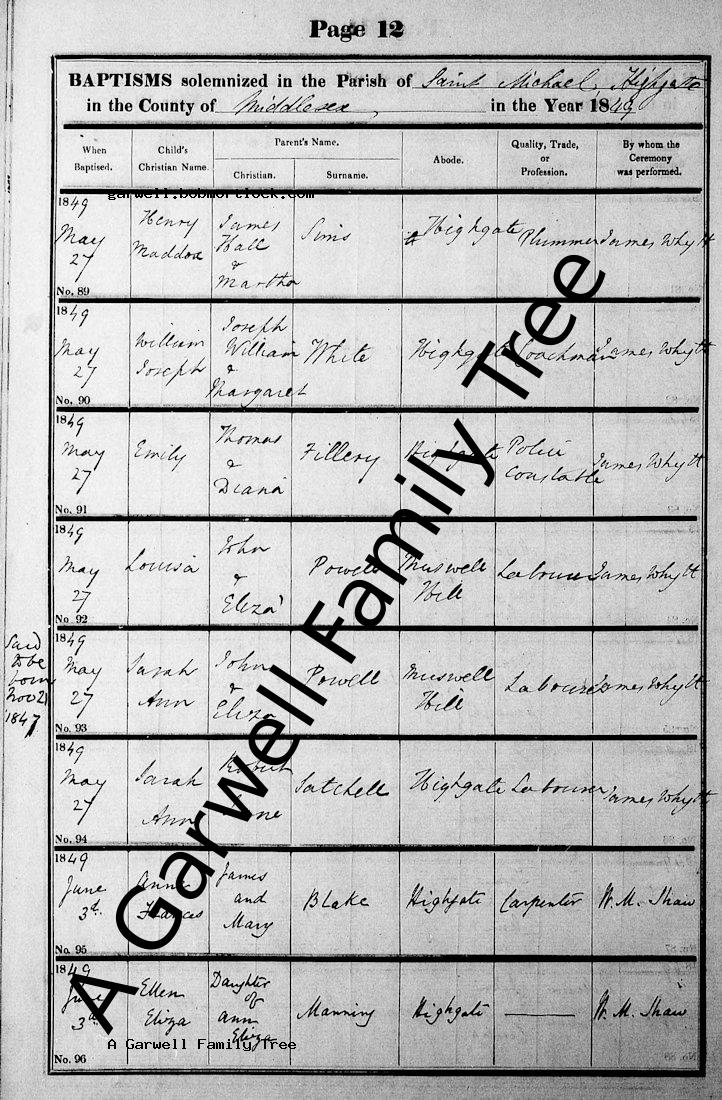 Page 12
BAPTISMS solemnized in the Parish of Saint Michael, Highgate
in the County of Middlesex, in the Year 1849
When Baptised. Child's Christian Name. Parent's Name. Christian. Surname. Abode. Quality, Trade, or Profession. By whom the Ceremony was performed.
garwell.bobmortlock.com
1849 May 27 No. 89 Henry Maddox James Hall & Martha Sims Highgate Plummer James Whytt
1849 May 27 No. 90 William Joseph Joseph William & Margaret White Highgate Coachman James Whytt
1849 May 27 No. 91 Emily Thomas & Diana Fillery Highgate Police Constable James Whytt
1849 May 27 No. 92 Louisa John & Eliza Powell Muswell Hill Labourer James Whytt
Said to be born Nov 21 1847
1849 May 27 No. 93 Sarah Ann John & Eliza Powell Muswell Hill Labourer James Whytt
1849 May 27 No. 94 Sarah Ann Robert Satchell Highgate Labourer James Whytt
1849 June 3d. No. 95 Anne Frances James and Mary Blake Highgate Carpenter W. M. Shaw
1849 June 3d. No. 96 Ellen Eliza Daughter of Ann Eliza Manning Highgate W. M. Shaw
A Garwell Family Tree
A Garwell Family Tree